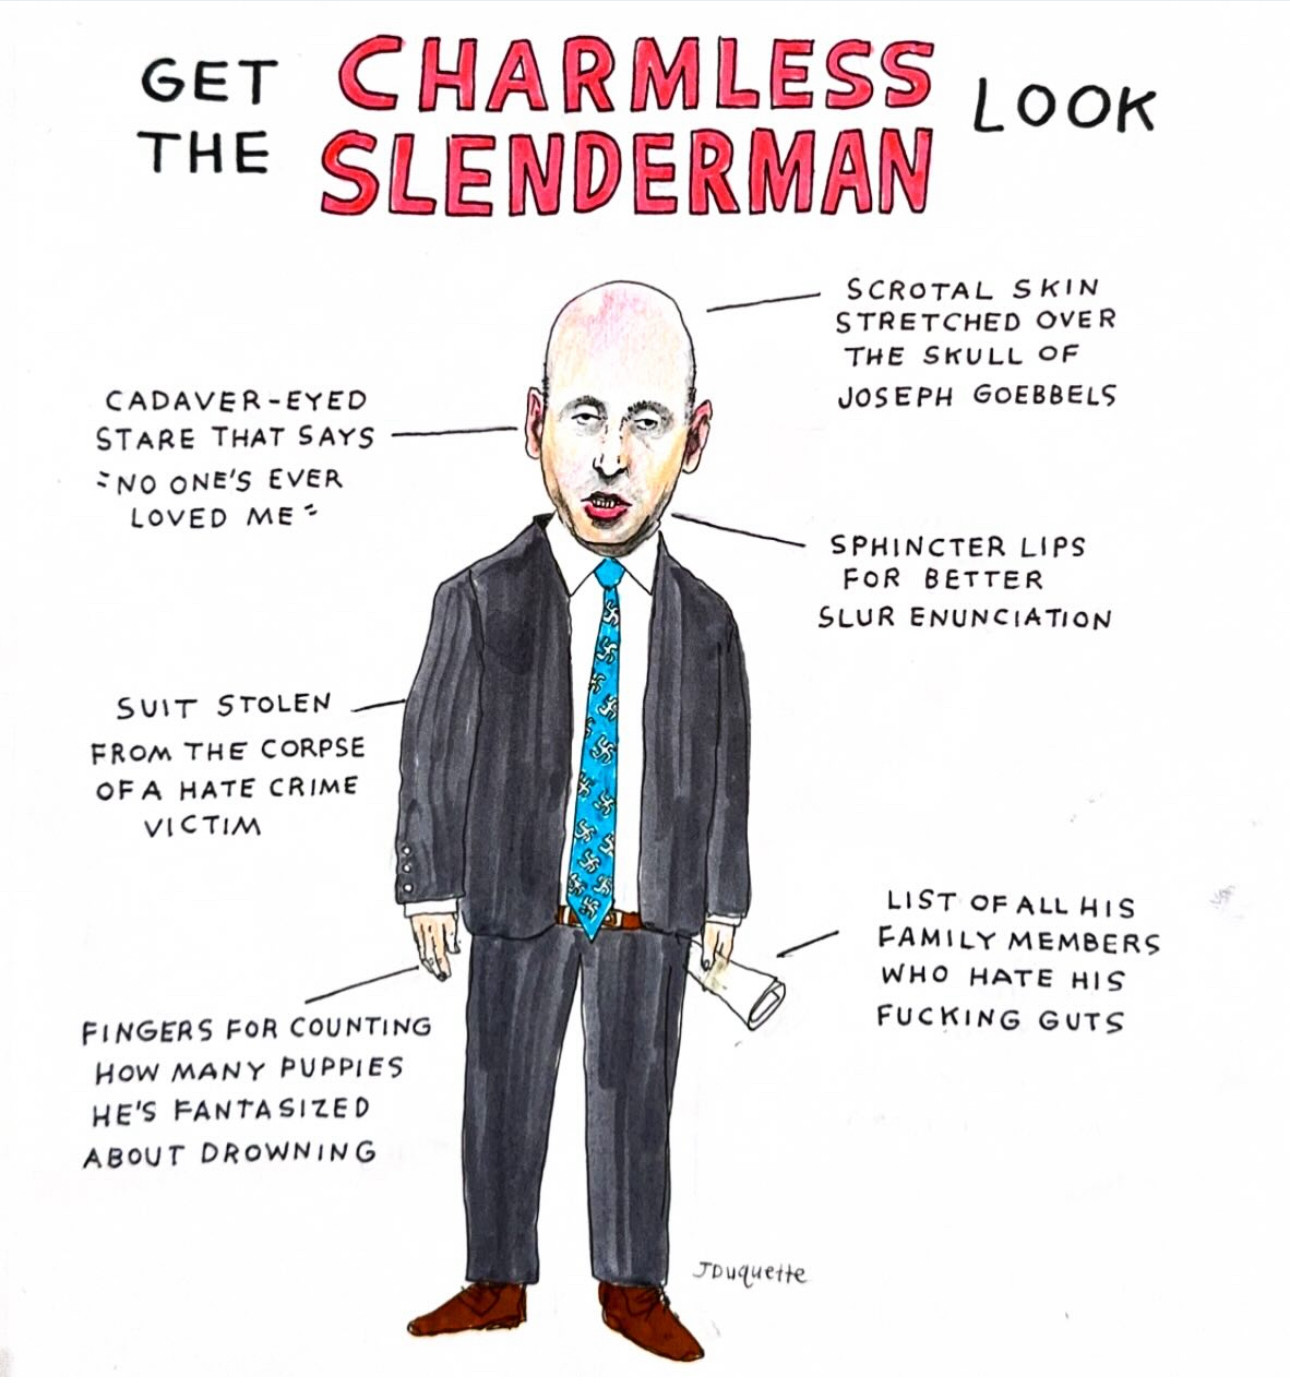 GET
THE
CHARMLESS
SLENDERMAN
LOOK
SCROTAL SKIN
STRETCHED OVER
THE SKULL OF
JOSEPH GOEBBELS
CADAVER-EYED
STARE THAT SAYS
"NO ONE'S EVER
LOVED ME"
SPHINCTER LIPS
FOR BETTER
SLUR ENUNCIATION
SUIT STOLEN
FROM THE CORPSE
OF A HATE CRIME
VICTIM
LIST OF ALL HIS
FAMILY MEMBERS
WHO HATE HIS
FUCKING GUTS
FINGERS FOR COUNTING
HOW MANY PUPPIES
HE'S FANTASIZED
ABOUT DROWNING
JDuquette